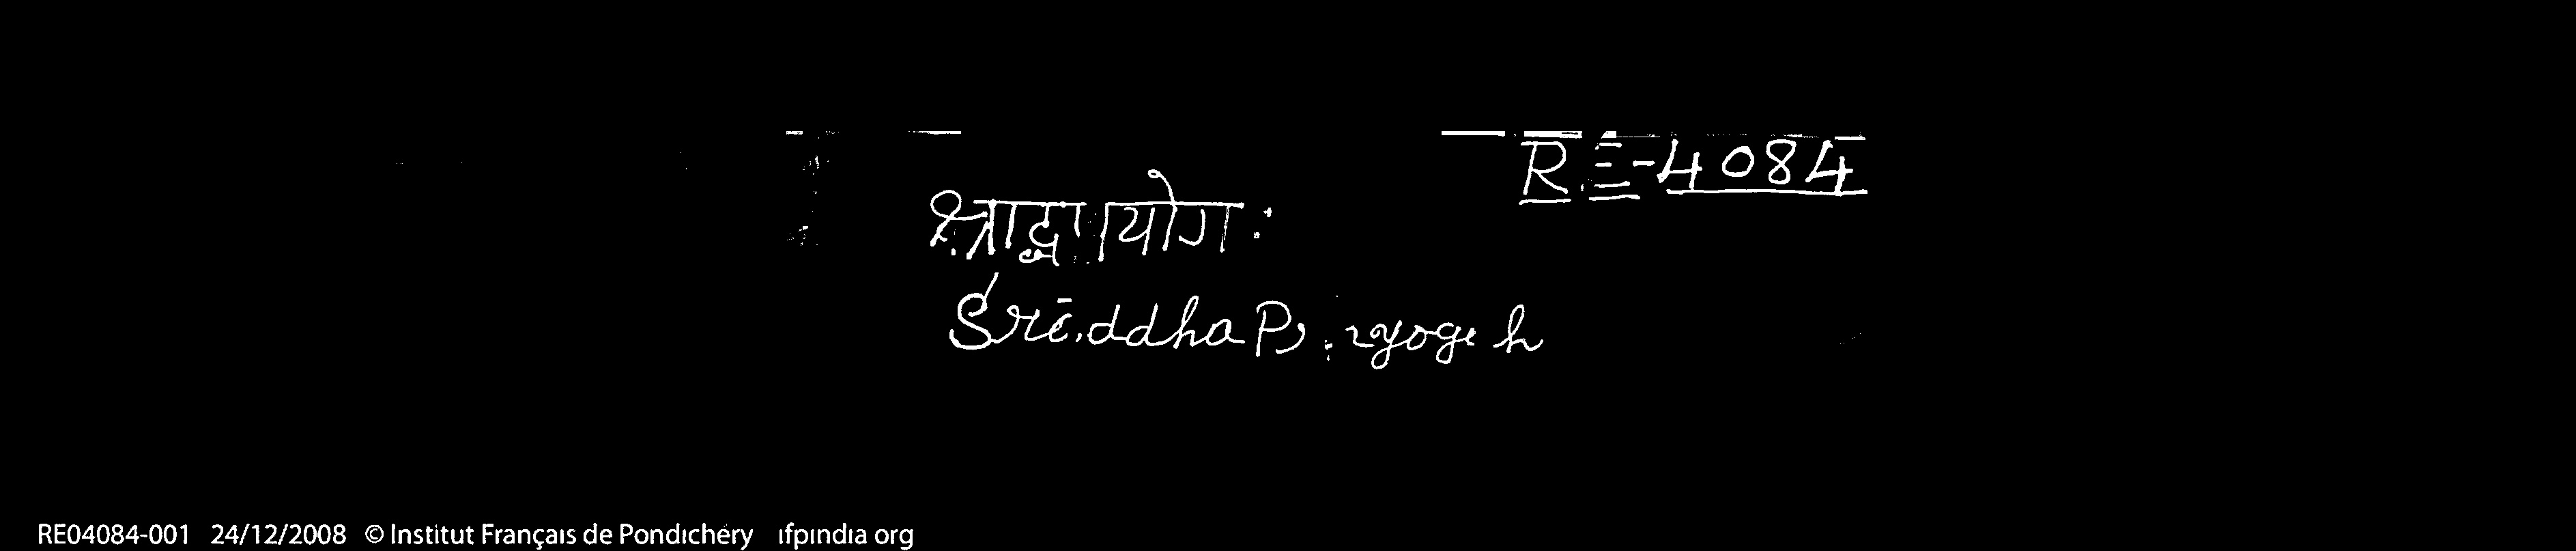 RE-4084
श्राद्धप्रयोगः
Śrāddha Prayogah
RE04084-001 24/12/2008 © Institut Français de Pondichéry ifpindia org